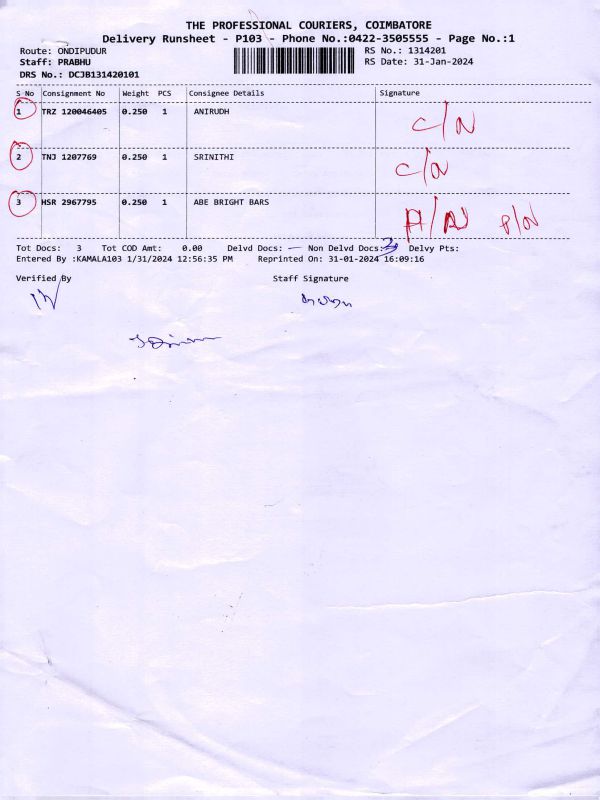 THE PROFESSIONAL COURIERS, COIMBATORE
Delivery Runsheet - P103 - Phone No.:0422-3505555 - Page No.:1
Route: ONDIPUDUR RS No.: 1314201
Staff: PRABHU RS Date: 31-Jan-2024
DRS No.: DCJB131420101
S No Consignment No Weight PCS Consignee Details Signature
1 TRZ 120046405 0.250 1 ANIRUDH C/N
2 TNJ 1207769 0.250 1 SRINITHI C/N
3 HSR 2967795 0.250 1 ABE BRIGHT BARS A/N P/N
Tot Docs: 3 Tot COD Amt: 0.00 Delvd Docs: — Non Delvd Docs: 3 Delvy Pts:
Entered By :KAMALA103 1/31/2024 12:56:35 PM Reprinted On: 31-01-2024 16:09:16
Verified By Staff Signature